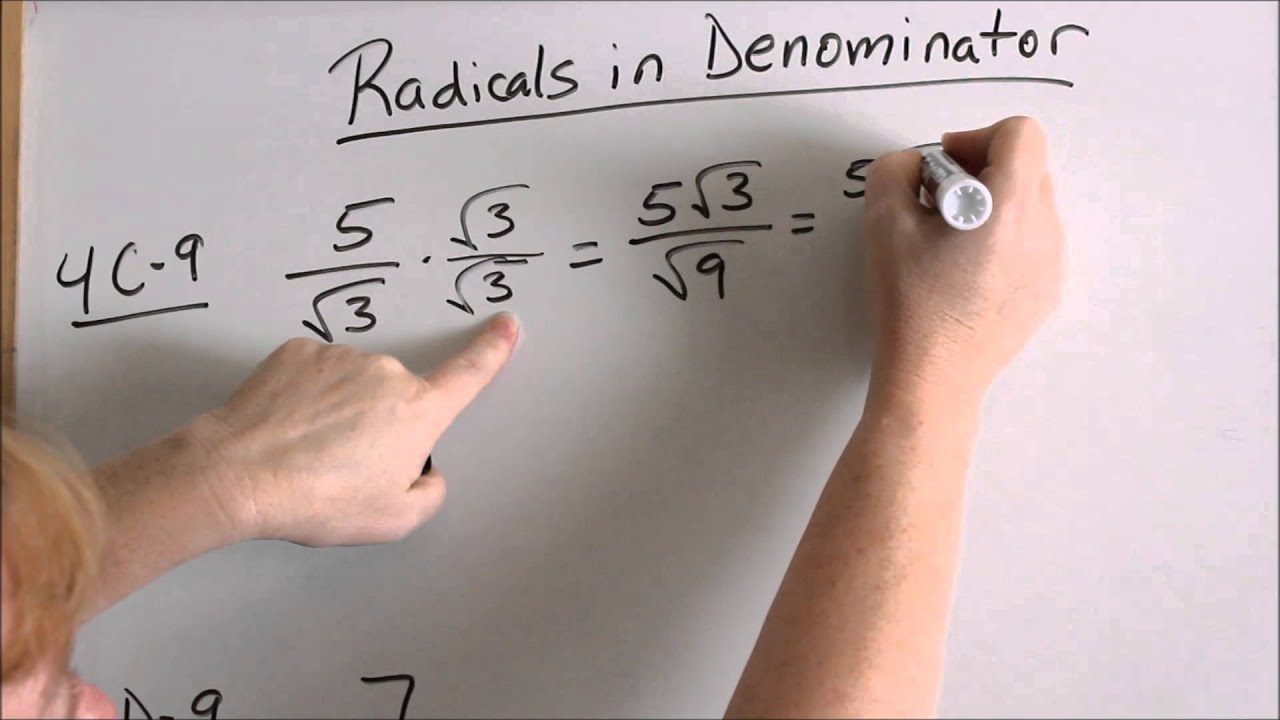 Radicals in Denominator
4C-9 5/√3 · √3/√3 = 5√3/√9 = 5
D-9 7